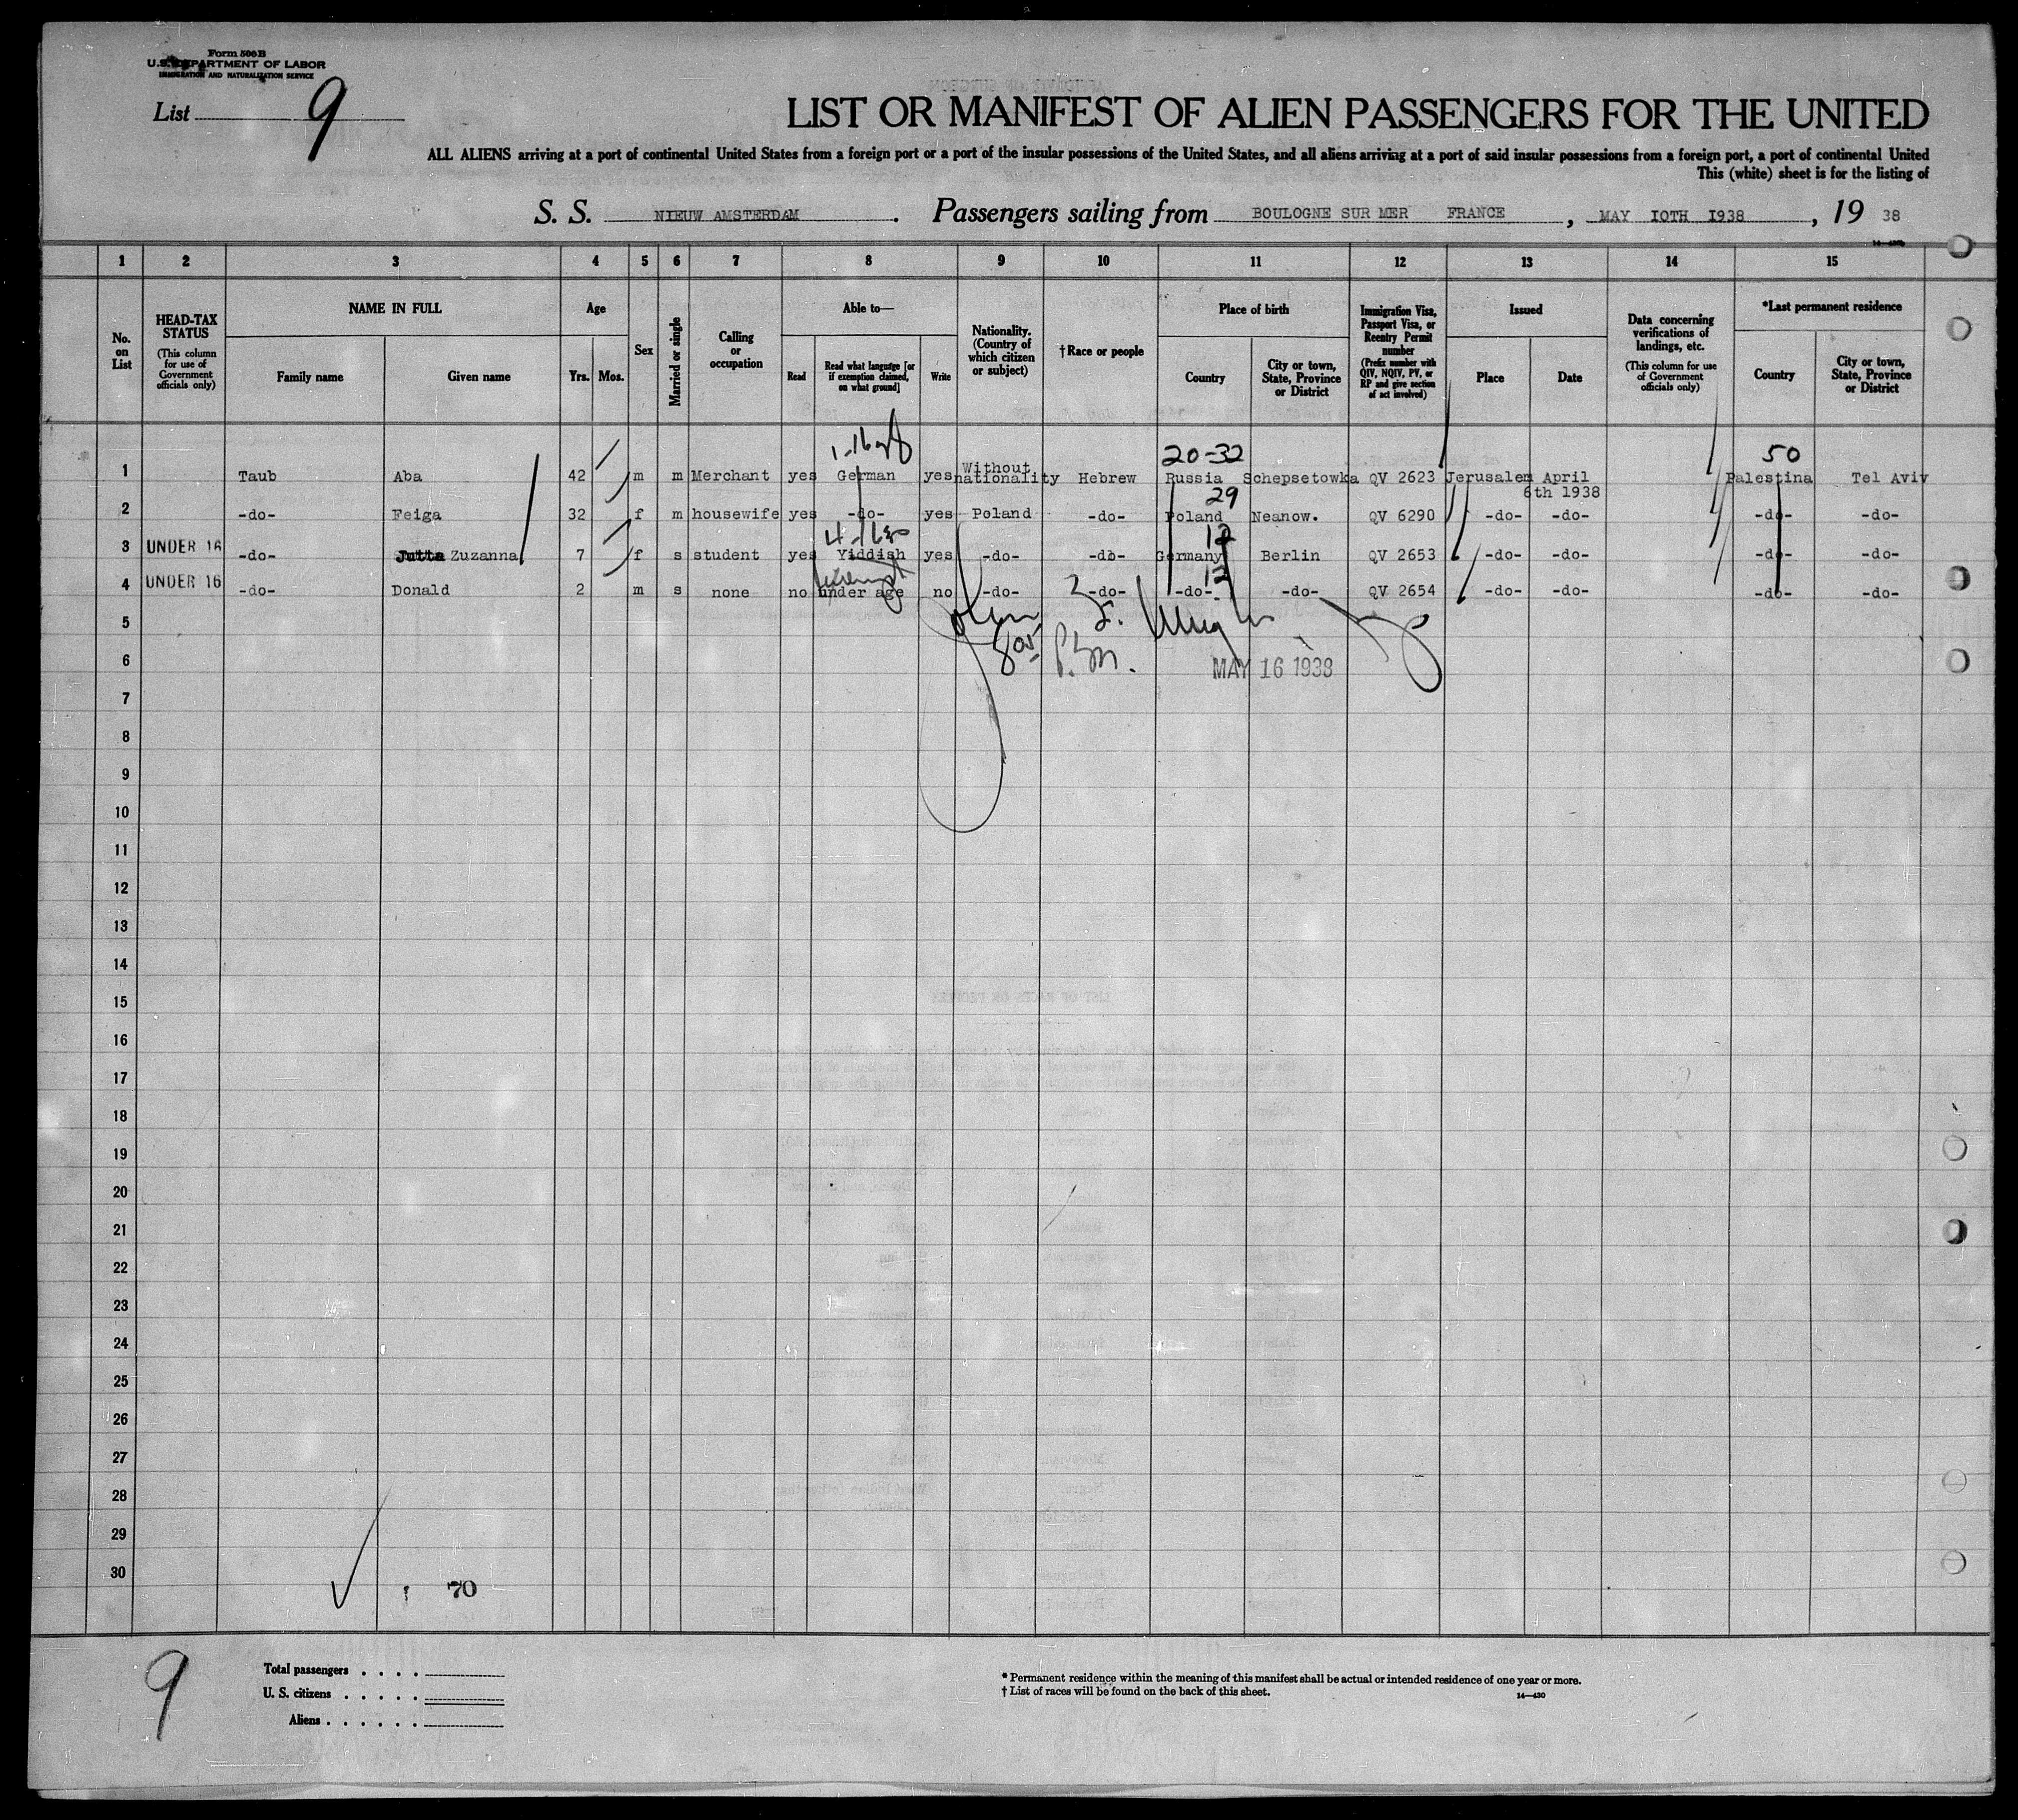 Form 500 B
U.S. DEPARTMENT OF LABOR
IMMIGRATION AND NATURALIZATION SERVICE
List 9
LIST OR MANIFEST OF ALIEN PASSENGERS FOR THE UNITED
ALL ALIENS arriving at a port of continental United States from a foreign port or a port of the insular possessions of the United States, and all aliens arriving at a port of said insular possessions from a foreign port, a port of continental United
This (white) sheet is for the listing of
S. S. NIEUW AMSTERDAM . Passengers sailing from BOULOGNE SUR MER FRANCE , MAY IOTH I938 , 19 38
1 2 3 4 5 6 7 8 9 10 11 12 13 14 15
No. on List
HEAD-TAX STATUS (This column for use of Government officials only)
NAME IN FULL
Family name
Given name
Age
Yrs.
Mos.
Sex
Married or single
Calling or occupation
Able to—
Read
Read what language [or if exemption claimed, on what ground]
Write
Nationality. (Country of which citizen or subject)
†Race or people
Place of birth
Country
City or town, State, Province or District
Immigration Visa, Passport Visa, or Reentry Permit number (Prefix number with QIV, NQIV, PV, or RP and give section of act involved)
Issued
Place
Date
Data concerning verifications of landings, etc. (This column for use of Government officials only)
*Last permanent residence
Country
City or town, State, Province or District
20-32 50
1 Taub Aba 42 m m Merchant yes German yes Without nationality Hebrew Russia Schepsetowka QV 2623 Jerusalem April 6th 1938 Palestina Tel Aviv
29
2 -do- Feiga 32 f m housewife yes -do- yes Poland -do- Poland Neanow. QV 6290 -do- -do- -do- -do-
12
3 UNDER 16 -do- Jutta Zuzanna 7 f s student yes Yiddish yes -do- -do- Germany Berlin QV 2653 -do- -do- -do- -do-
exempt 12
4 UNDER 16 -do- Donald 2 m s none no under age no -do- -do- -do- -do- QV 2654 -do- -do- -do- -do-
5
P.M.
6 MAY 16 1938
7
8
9
10
11
12
13
14
15
16
17
18
19
20
21
22
23
24
25
26
27
28
29
30
70
9
Total passengers . . . .
U. S. citizens . . . . .
Aliens . . . . . .
* Permanent residence within the meaning of this manifest shall be actual or intended residence of one year or more.
† List of races will be found on the back of this sheet.
14—430